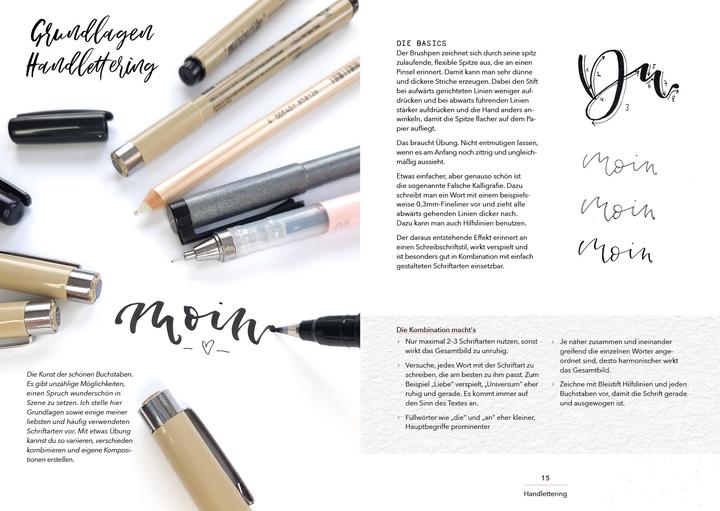 Grundlagen
Handlettering
moin
Die Kunst der schönen Buchstaben.
Es gibt unzählige Möglichkeiten,
einen Spruch wunderschön in
Szene zu setzen. Ich stelle hier
Grundlagen sowie einige meiner
liebsten und häufig verwendeten
Schriftarten vor. Mit etwas Übung
kannst du so variieren, verschieden
kombinieren und eigene Komposi-
tionen erstellen.
DIE BASICS
Der Brushpen zeichnet sich durch seine spitz
zulaufende, flexible Spitze aus, die an einen
Pinsel erinnert. Damit kann man sehr dünne
und dickere Striche erzeugen. Dabei den Stift
bei aufwärts gerichteten Linien weniger auf-
drücken und bei abwärts führenden Linien
stärker aufdrücken und die Hand anders an-
winkeln, damit die Spitze flacher auf dem Pa-
pier aufliegt.
Das braucht Übung. Nicht entmutigen lassen,
wenn es am Anfang noch zittrig und ungleich-
mäßig aussieht.
Etwas einfacher, aber genauso schön ist
die sogenannte Falsche Kalligrafie. Dazu
schreibt man ein Wort mit einem beispiels-
weise 0,3mm-Fineliner vor und zieht alle
abwärts gehenden Linien dicker nach.
Dazu kann man auch Hilfslinien benutzen.
Der daraus entstehende Effekt erinnert an
einen Schreibschriftstil, wirkt verspielt und
ist besonders gut in Kombination mit einfach
gestalteten Schriftarten einsetzbar.
Du
moin
moin
moin
Die Kombination macht's
› Nur maximal 2–3 Schriftarten nutzen, sonst
wirkt das Gesamtbild zu unruhig.
› Versuche, jedes Wort mit der Schriftart zu
schreiben, die am besten zu ihm passt. Zum
Beispiel „Liebe" verspielt, „Universum" eher
ruhig und gerade. Es kommt immer auf
den Sinn des Textes an.
› Füllwörter wie „die" und „an" eher kleiner,
Hauptbegriffe prominenter
› Je näher zusammen und ineinander
greifend die einzelnen Wörter ange-
ordnet sind, desto harmonischer wirkt
das Gesamtbild.
› Zeichne mit Bleistift Hilfslinien und jeden
Buchstaben vor, damit die Schrift gerade
und ausgewogen ist.
15
Handlettering